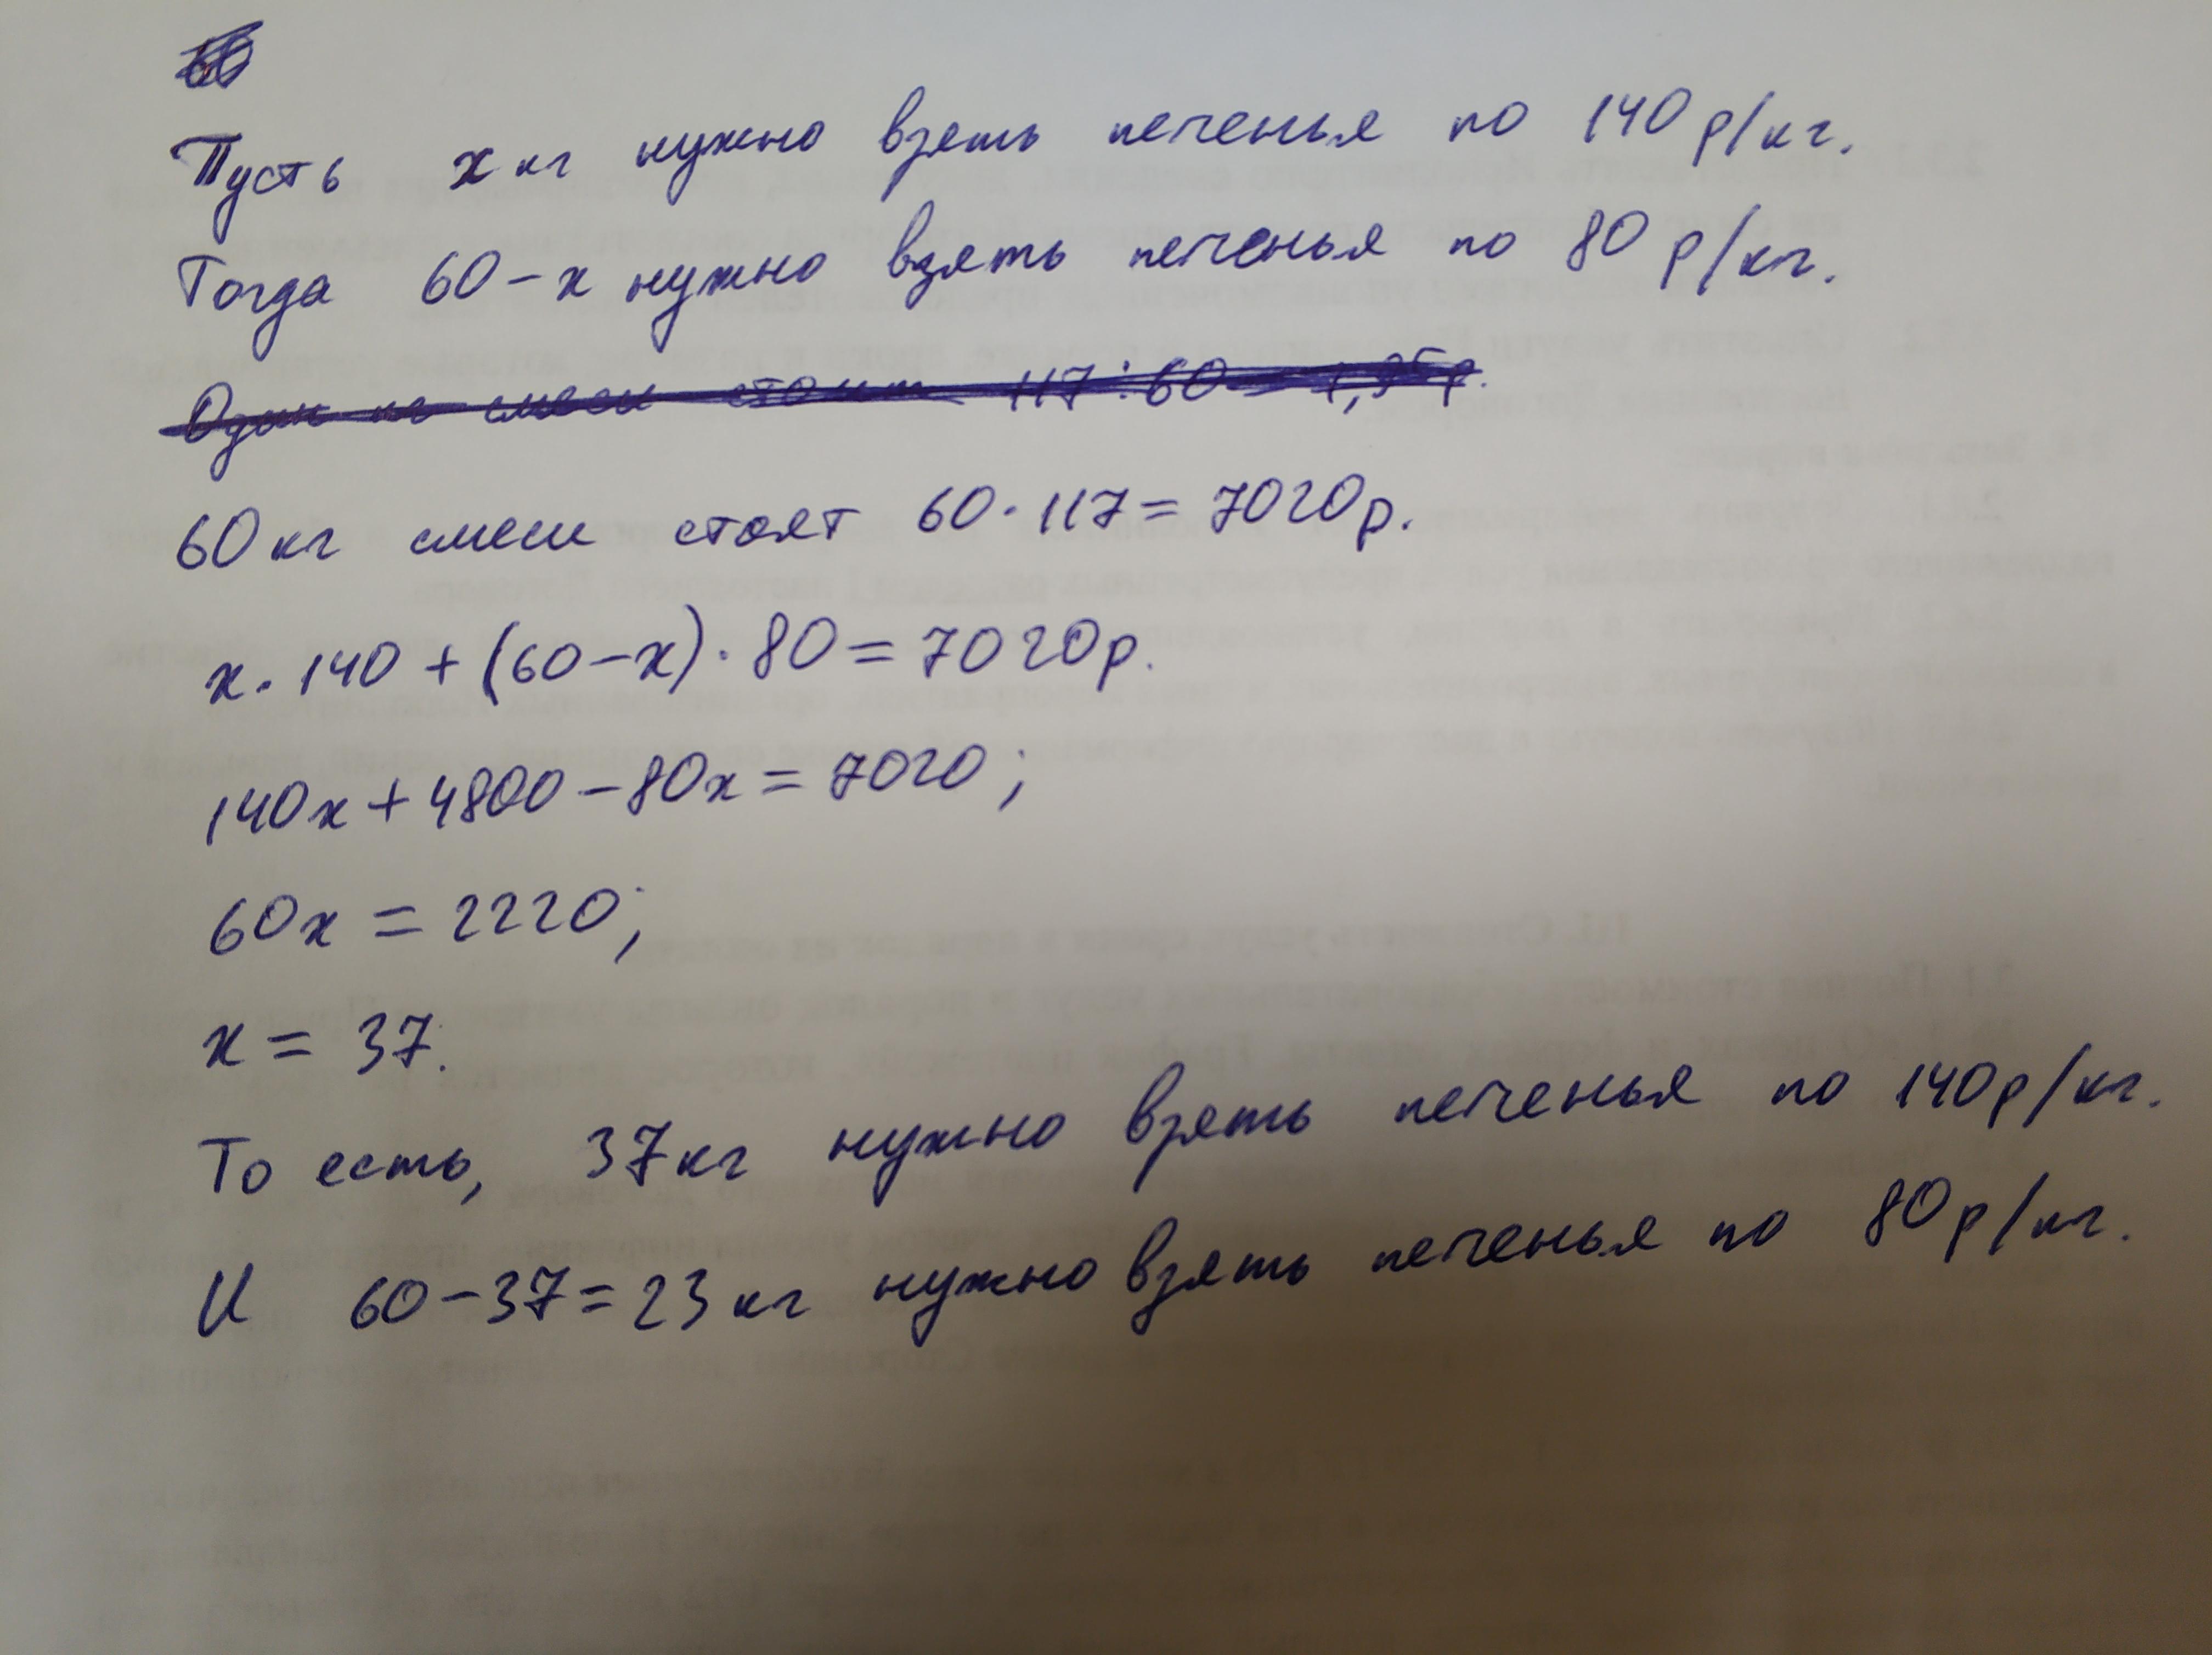 Пусть x кг нужно взять печенья по 140 р/кг.
Тогда 60-x нужно взять печенья по 80 р/кг.
Один кг смеси стоит 117:60=1,95р.
60 кг смеси стоят 60·117=7020р.
x·140+(60-x)·80=7020р.
140x+4800-80x=7020;
60x=2220;
x=37.
То есть, 37кг нужно взять печенья по 140р/кг.
И 60-37=23 кг нужно взять печенья по 80р/кг.